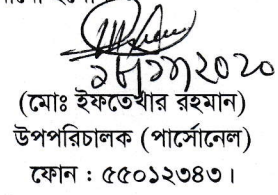 ১৮/১১/২০২০
(মোঃ ইফতেখার রহমান)
উপপরিচালক (পার্সোনেল)
ফোন : ৫৫০১২৩৪৩।